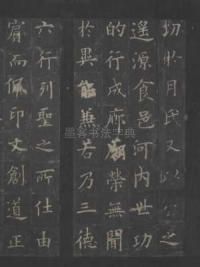 切於月氏又以公之
遙源食邑河內世功
的行成廊廟榮無聞
於異能兼若乃三德
六行列聖之所仕由
而佩印文創道正
书法字典